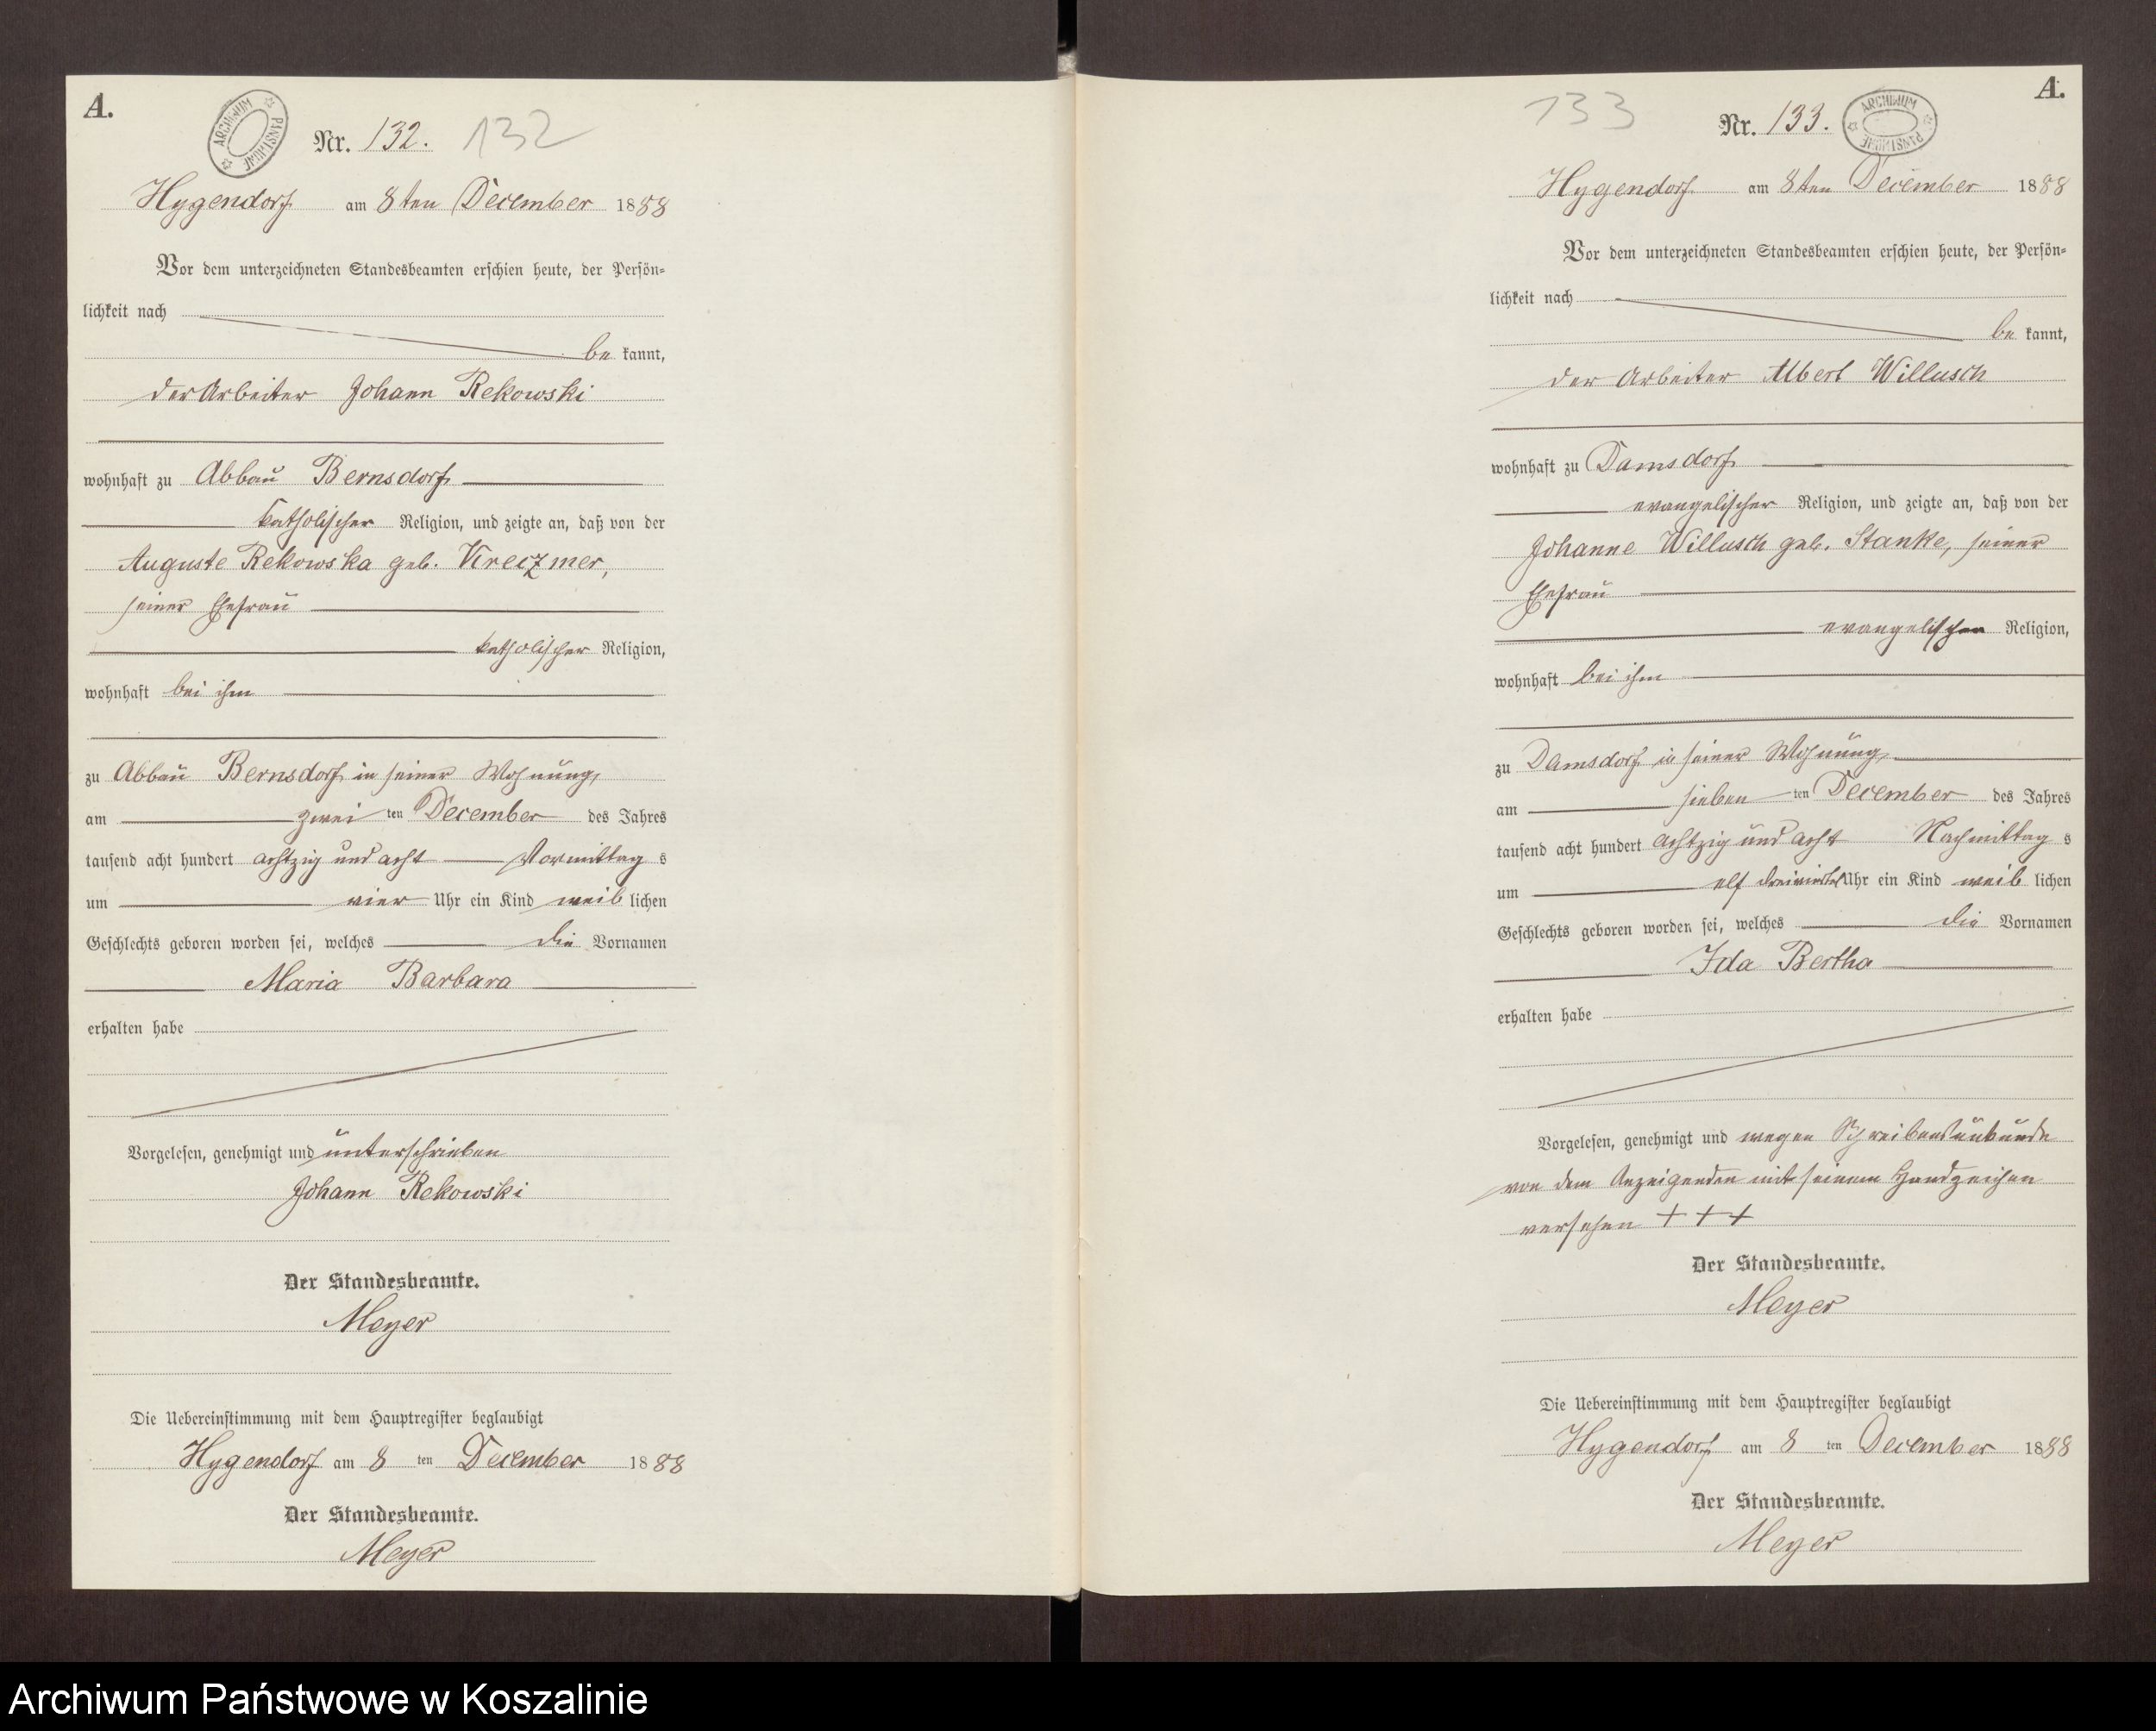 A.
ARCHIWUM PAŃSTWOWE
Nr. 132. 132
Hygendorf am 8ten December 1888
Vor dem unterzeichneten Standesbeamten erschien heute, der Persön-
lichkeit nach
be kannt,
der Arbeiter Johann Rekowski
wohnhaft zu Abbau Bernsdorf
katholischer Religion, und zeigte an, daß von der
Auguste Rekowska geb. Kreczmer,
seiner Ehefrau
katholischer Religion,
wohnhaft bei ihm
zu Abbau Bernsdorf in seiner Wohnung,
am zwei ten December des Jahres
tausend acht hundert achtzig und acht Vormittag s
um vier Uhr ein Kind weib lichen
Geschlechts geboren worden sei, welches die Vornamen
Maria Barbara
erhalten habe
Vorgelesen, genehmigt und unterschrieben
Johann Rekowski
Der Standesbeamte.
Meyer
Die Uebereinstimmung mit dem Hauptregister beglaubigt
Hygendorf am 8 ten December 1888
Der Standesbeamte.
Meyer
A.
133 Nr. 133.
ARCHIWUM PAŃSTWOWE
Hygendorf am 8ten December 1888
Vor dem unterzeichneten Standesbeamten erschien heute, der Persön-
lichkeit nach
be kannt,
der Arbeiter Albert Willusch
wohnhaft zu Damsdorf
evangelischer Religion, und zeigte an, daß von der
Johanne Willusch geb. Stanke, seiner
Ehefrau
evangelischen Religion,
wohnhaft bei ihm
zu Damsdorf in seiner Wohnung,
am sieben ten December des Jahres
tausend acht hundert achtzig und acht Nachmittag s
um elf dreiviertel Uhr ein Kind weib lichen
Geschlechts geboren worden sei, welches die Vornamen
Ida Bertha
erhalten habe
Vorgelesen, genehmigt und wegen Schreibensunkunde
von dem Anzeigenden mit seinem Handzeichen
versehen + + +
Der Standesbeamte.
Meyer
Die Uebereinstimmung mit dem Hauptregister beglaubigt
Hygendorf am 8 ten December 1888
Der Standesbeamte.
Meyer
Archiwum Państwowe w Koszalinie